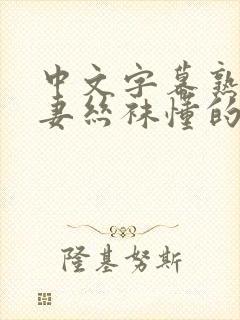 中文字幕熟
妻丝袜懂的
隆基努斯